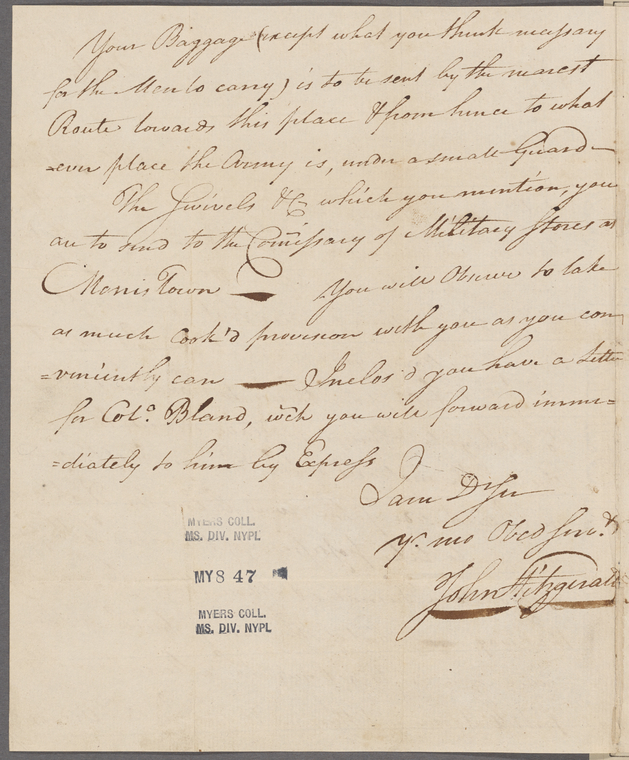 Your Baggage (except what you think necessary
for the Men to carry) is to be sent by the nearest
Route towards this place & from hence to what
=ever place the Army is, under a small Guard—
The Swivels &c which you mention, you
are to send to the Comissary of Military Stores at
Morris Town — You will Observe to take
as much Cook'd provision with you as you con
=veniently can — Inclos'd you have a Letter
for Colo. Bland, wch you will forward imme=
=diately to him by Express
I am D Sir
Yr. mo Obed Servt.
John Fitzgerald
MYERS COLL.
MS. DIV. NYPL
MY 8 47
MYERS COLL.
MS. DIV. NYPL